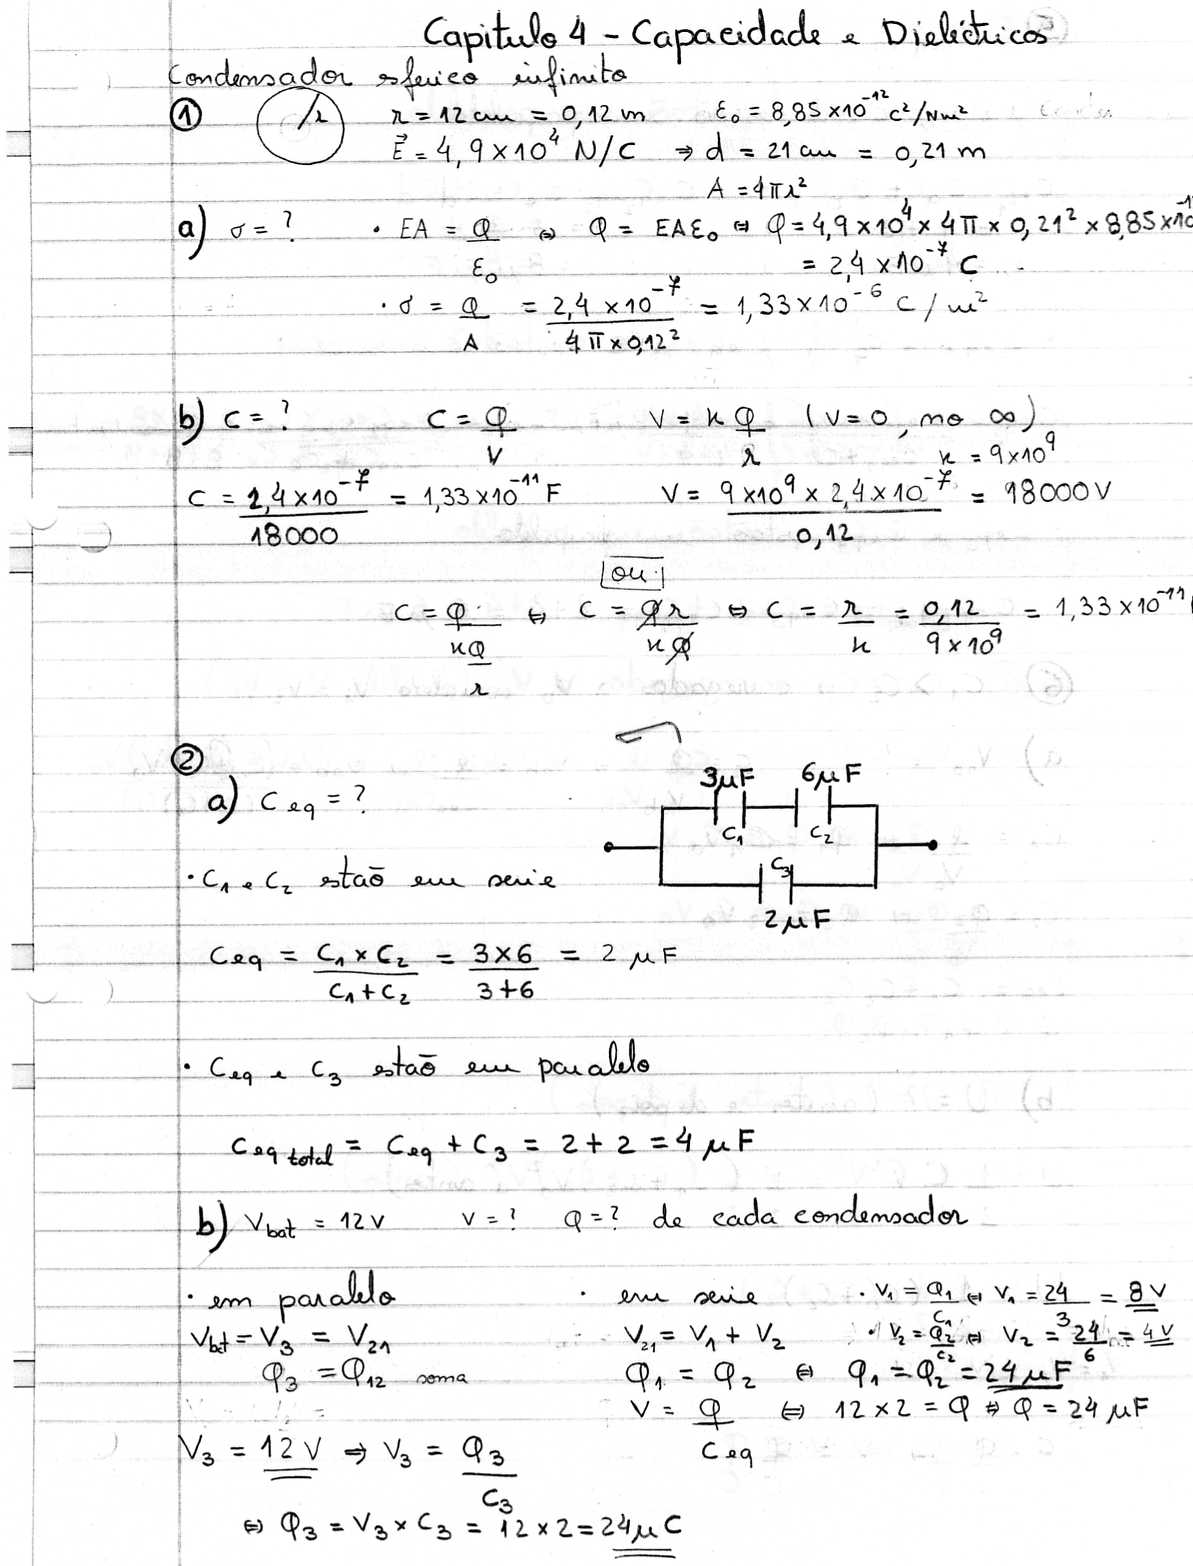 Capitulo 4 - Capacidade e Dieléctricos
Condensador esferico infinito
① r r = 12 cm = 0,12 m ε₀ = 8,85 × 10⁻¹² C²/Nm²
E⃗ = 4,9 × 10⁴ N/C ⇒ d = 21 cm = 0,21 m
A = 4πr²
a) σ = ? · EA = Q/ε₀ ⇔ Q = EAε₀ ⇔ Q = 4,9 × 10⁴ × 4π × 0,21² × 8,85 × 10
= 2,4 × 10⁻⁷ C
· σ = Q/A = 2,4 × 10⁻⁷/4π × 0,12² = 1,33 × 10⁻⁶ C/m²
b) C = ? C = Q/V V = k Q/r (V = 0, no ∞)
k = 9 × 10⁹
C = 2,4 × 10⁻⁷/18000 = 1,33 × 10⁻¹¹ F V = 9 × 10⁹ × 2,4 × 10⁻⁷/0,12 = 18000 V
ou
C = Q/kQ/r ⇔ C = Qr/kQ ⇔ C = r/k = 0,12/9 × 10⁹ = 1,33 × 10⁻¹¹
②
3μF 6μF
a) C eq = ?
C₁ C₂
C₃
· C₁ e C₂ estão em serie
2μF
Ceq = C₁ × C₂/C₁ + C₂ = 3 × 6/3 + 6 = 2 μF
· Ceq e C₃ estão em paralelo
Ceq total = Ceq + C₃ = 2 + 2 = 4 μF
b) Vbat = 12 V V = ? Q = ? de cada condensador
· em paralelo · em serie · V₁ = Q₁/C₁ ⇔ V₁ = 24/3 = 8 V
Vbat = V₃ = V₂₁ V₂₁ = V₁ + V₂ · V₂ = Q₂/C₂ ⇔ V₂ = 24/6 = 4 V
Q₃ = Q₁₂ soma Q₁ = Q₂ ⇔ Q₁ = Q₂ = 24 μF
V = Q/Ceq ⇔ 12 × 2 = Q ⇔ Q = 24 μF
V₃ = 12 V ⇒ V₃ = Q₃/C₃
⇔ Q₃ = V₃ × C₃ = 12 × 2 = 24 μC